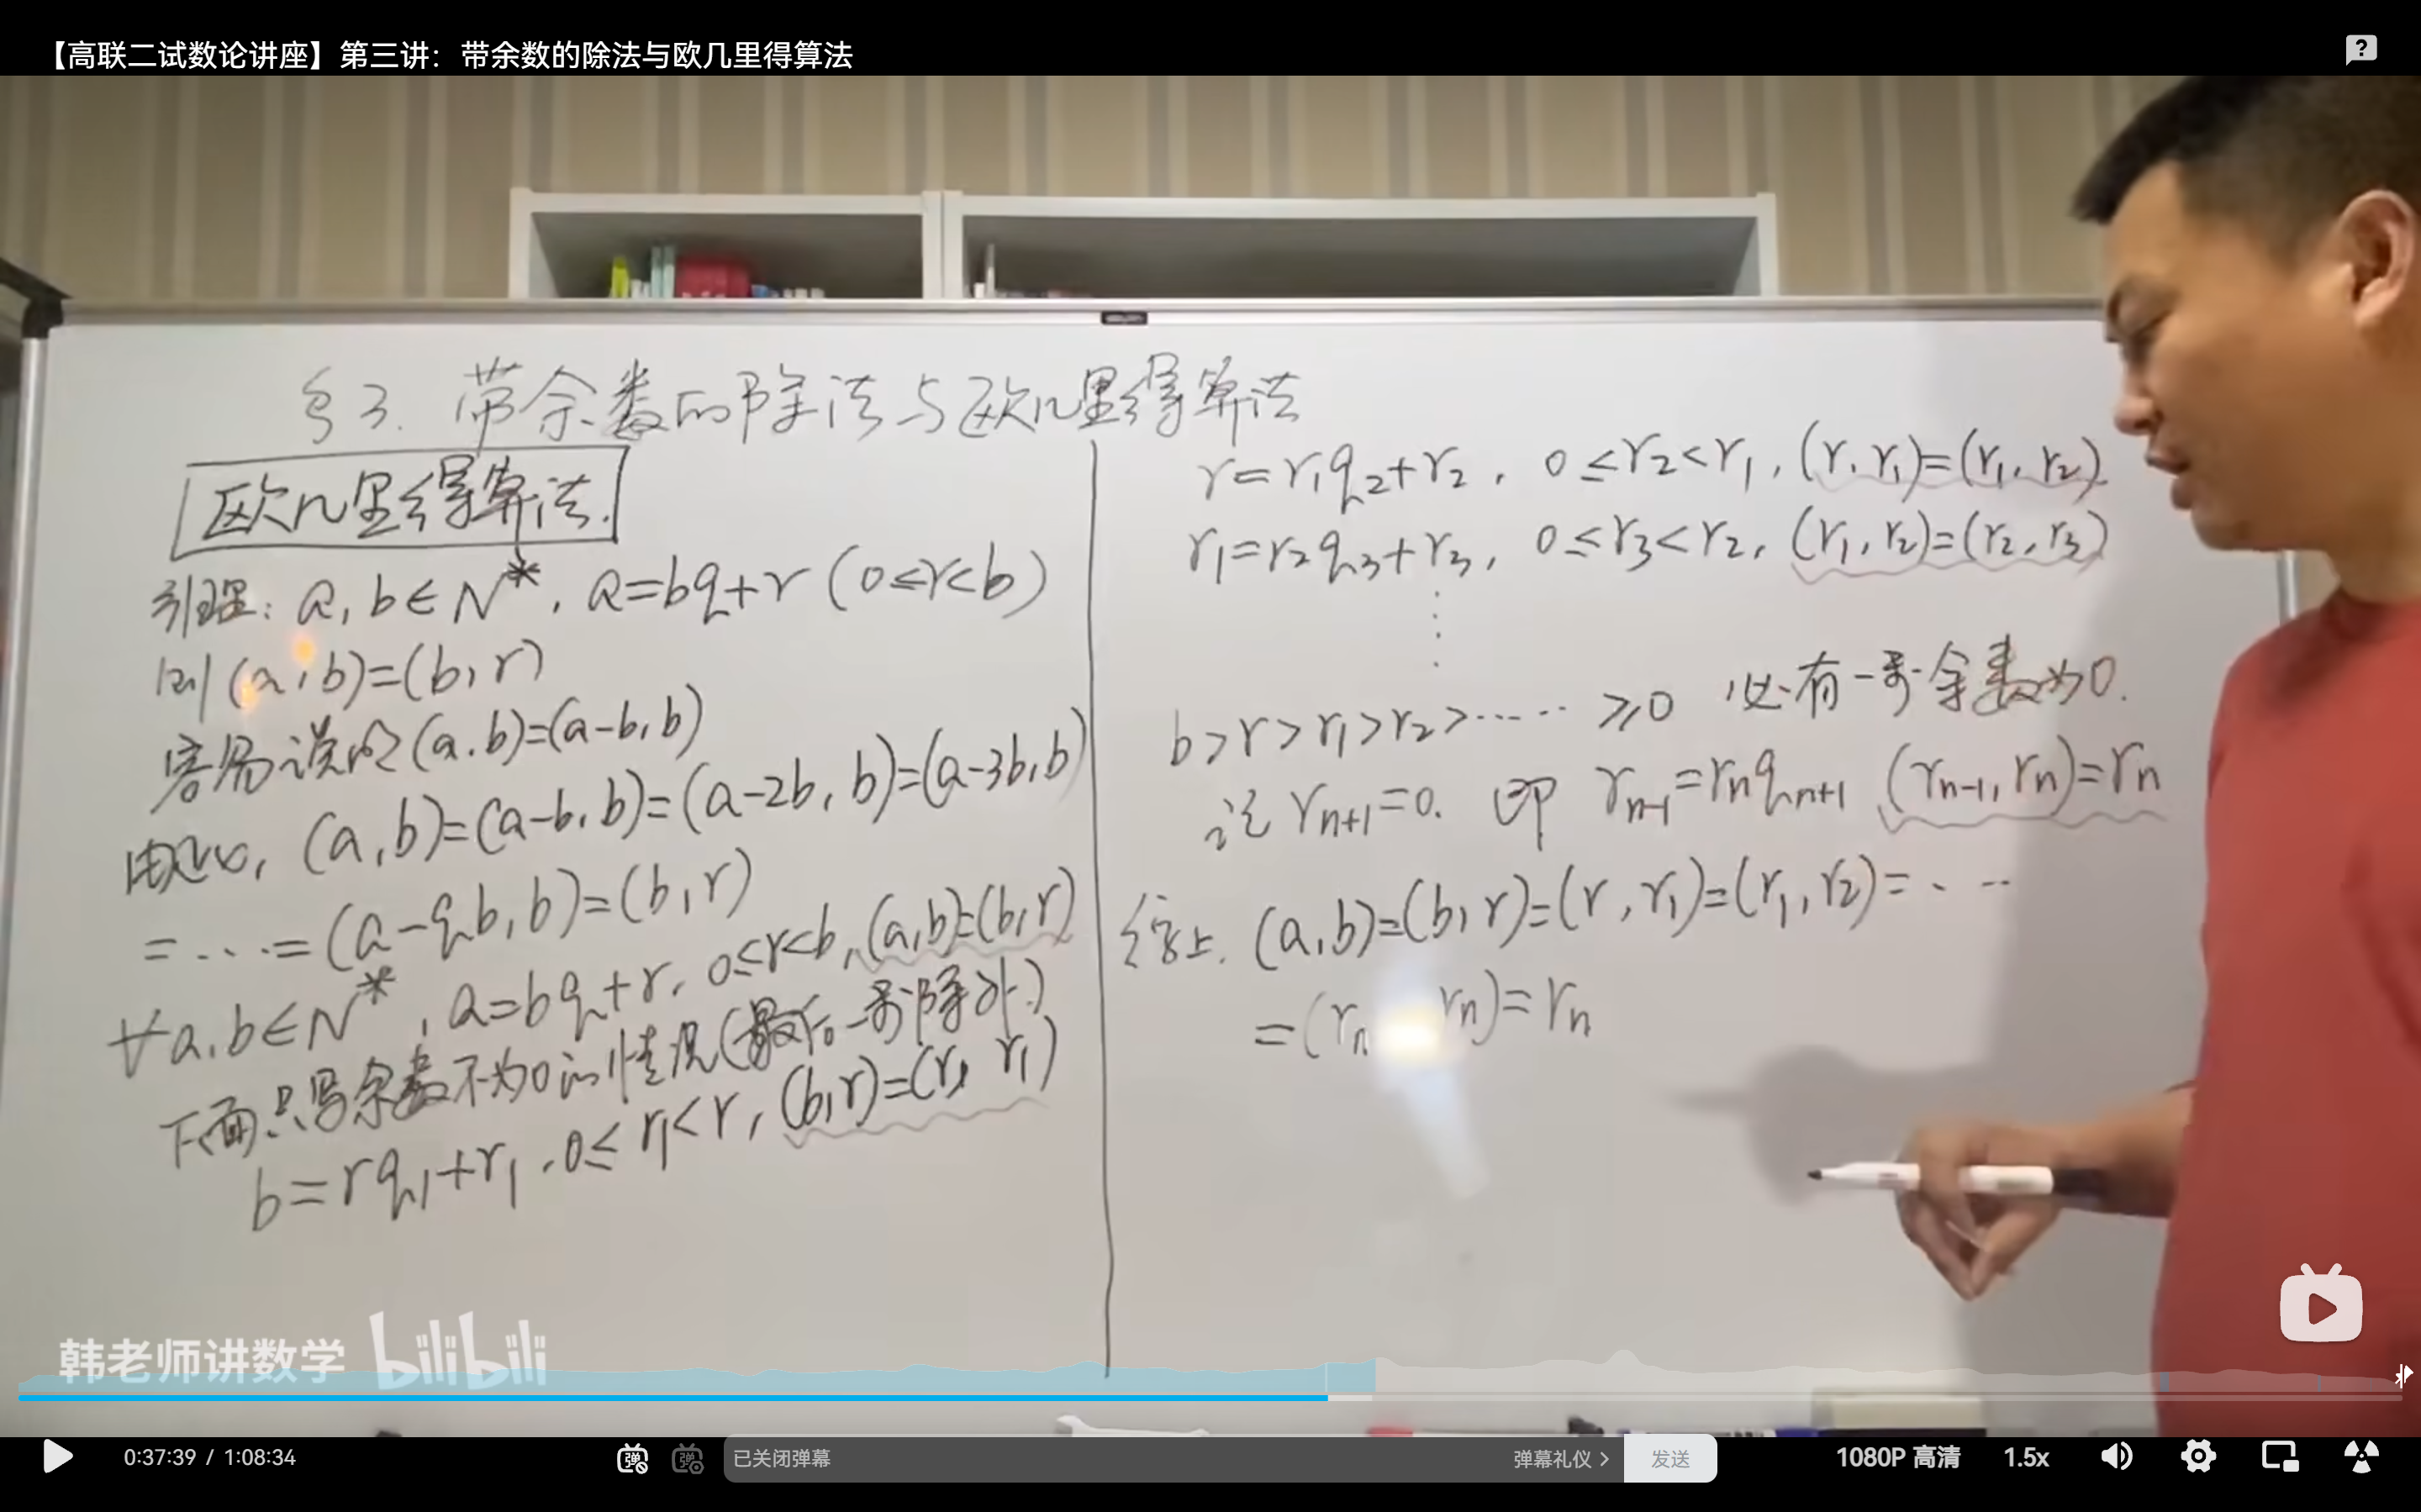 【高联二试数论讲座】第三讲：带余数的除法与欧几里得算法
§3. 带余数的除法与欧几里得算法
欧几里得算法.
引理: a, b∈N*, a=bq+r (0≤r<b)
则 (a, b)=(b, r)
容易说明 (a, b)=(a-b, b)
由此, (a, b)=(a-b, b)=(a-2b, b)=(a-3b, b)
=...=(a-qb, b)=(b, r)
∀a, b∈N*, a=bq+r, 0≤r<b, (a, b)=(b, r)
下面只写余数不为0的情况(最后一步除外)
b=rq₁+r₁, 0≤r₁<r, (b, r)=(r, r₁)
r=r₁q₂+r₂, 0≤r₂<r₁, (r, r₁)=(r₁, r₂)
r₁=r₂q₃+r₃, 0≤r₃<r₂, (r₁, r₂)=(r₂, r₃)
⋮
b>r>r₁>r₂>...... ≥0 必有一步余数为0.
设 rₙ₊₁=0. 即 rₙ₋₁=rₙqₙ₊₁ (rₙ₋₁, rₙ)=rₙ
综上. (a, b)=(b, r)=(r, r₁)=(r₁, r₂)=...
=(rₙ rₙ)=rₙ
韩老师讲数学 bilibili
0:37:39 / 1:08:34
弹
弹
已关闭弹幕
弹幕礼仪 >
发送
1080P 高清
1.5x